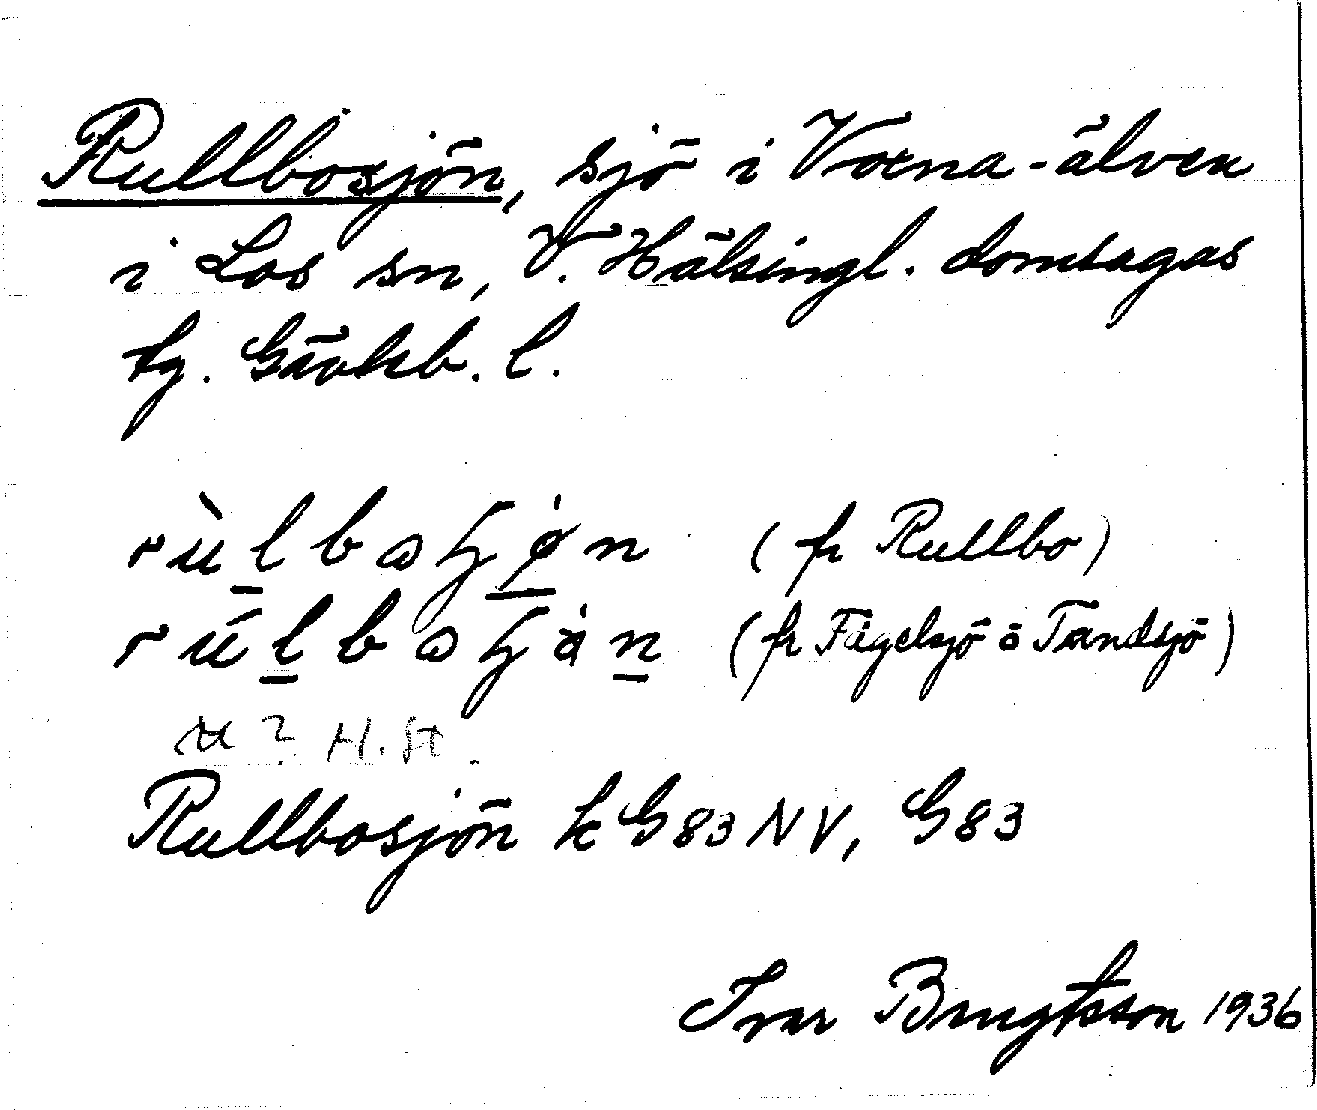 Rullbosjön, sjö i Voxna-älven
i Los sn, V. Hälsingl. domsagas
tg. Gävleb. l.
rùlboʃø̀n (fr Rullbo)
rúlboʃȧn (fr Fågelsjö o Tandsjö)
u? H. St.
Rullbosjön k G83NV, G83
Ivar Bengtsson 1936